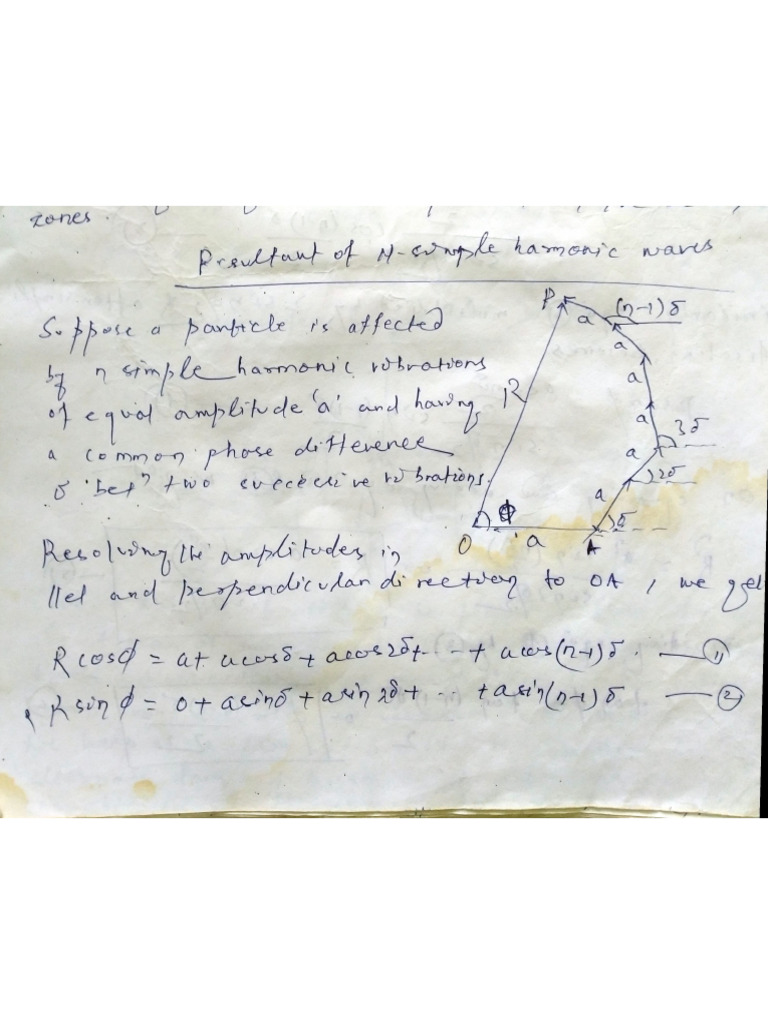 zones.
Resultant of N-simple harmonic waves
Suppose a particle is affected
by n simple harmonic vibrations
of equal amplitude 'a' and having
a common phase difference
δ betⁿ two successive vibrations.
P
a
(n-1)δ
a
a
R
a
3δ
a
2δ
a
ϕ
δ
O
a
A
Resolving the amplitudes in
llel and perpendicular direction to OA, we get
Rcosϕ = a + acosδ + acos2δ + ... + acos(n-1)δ. — ①
Rsinϕ = 0 + asinδ + asin2δ + ... + asin(n-1)δ — ②